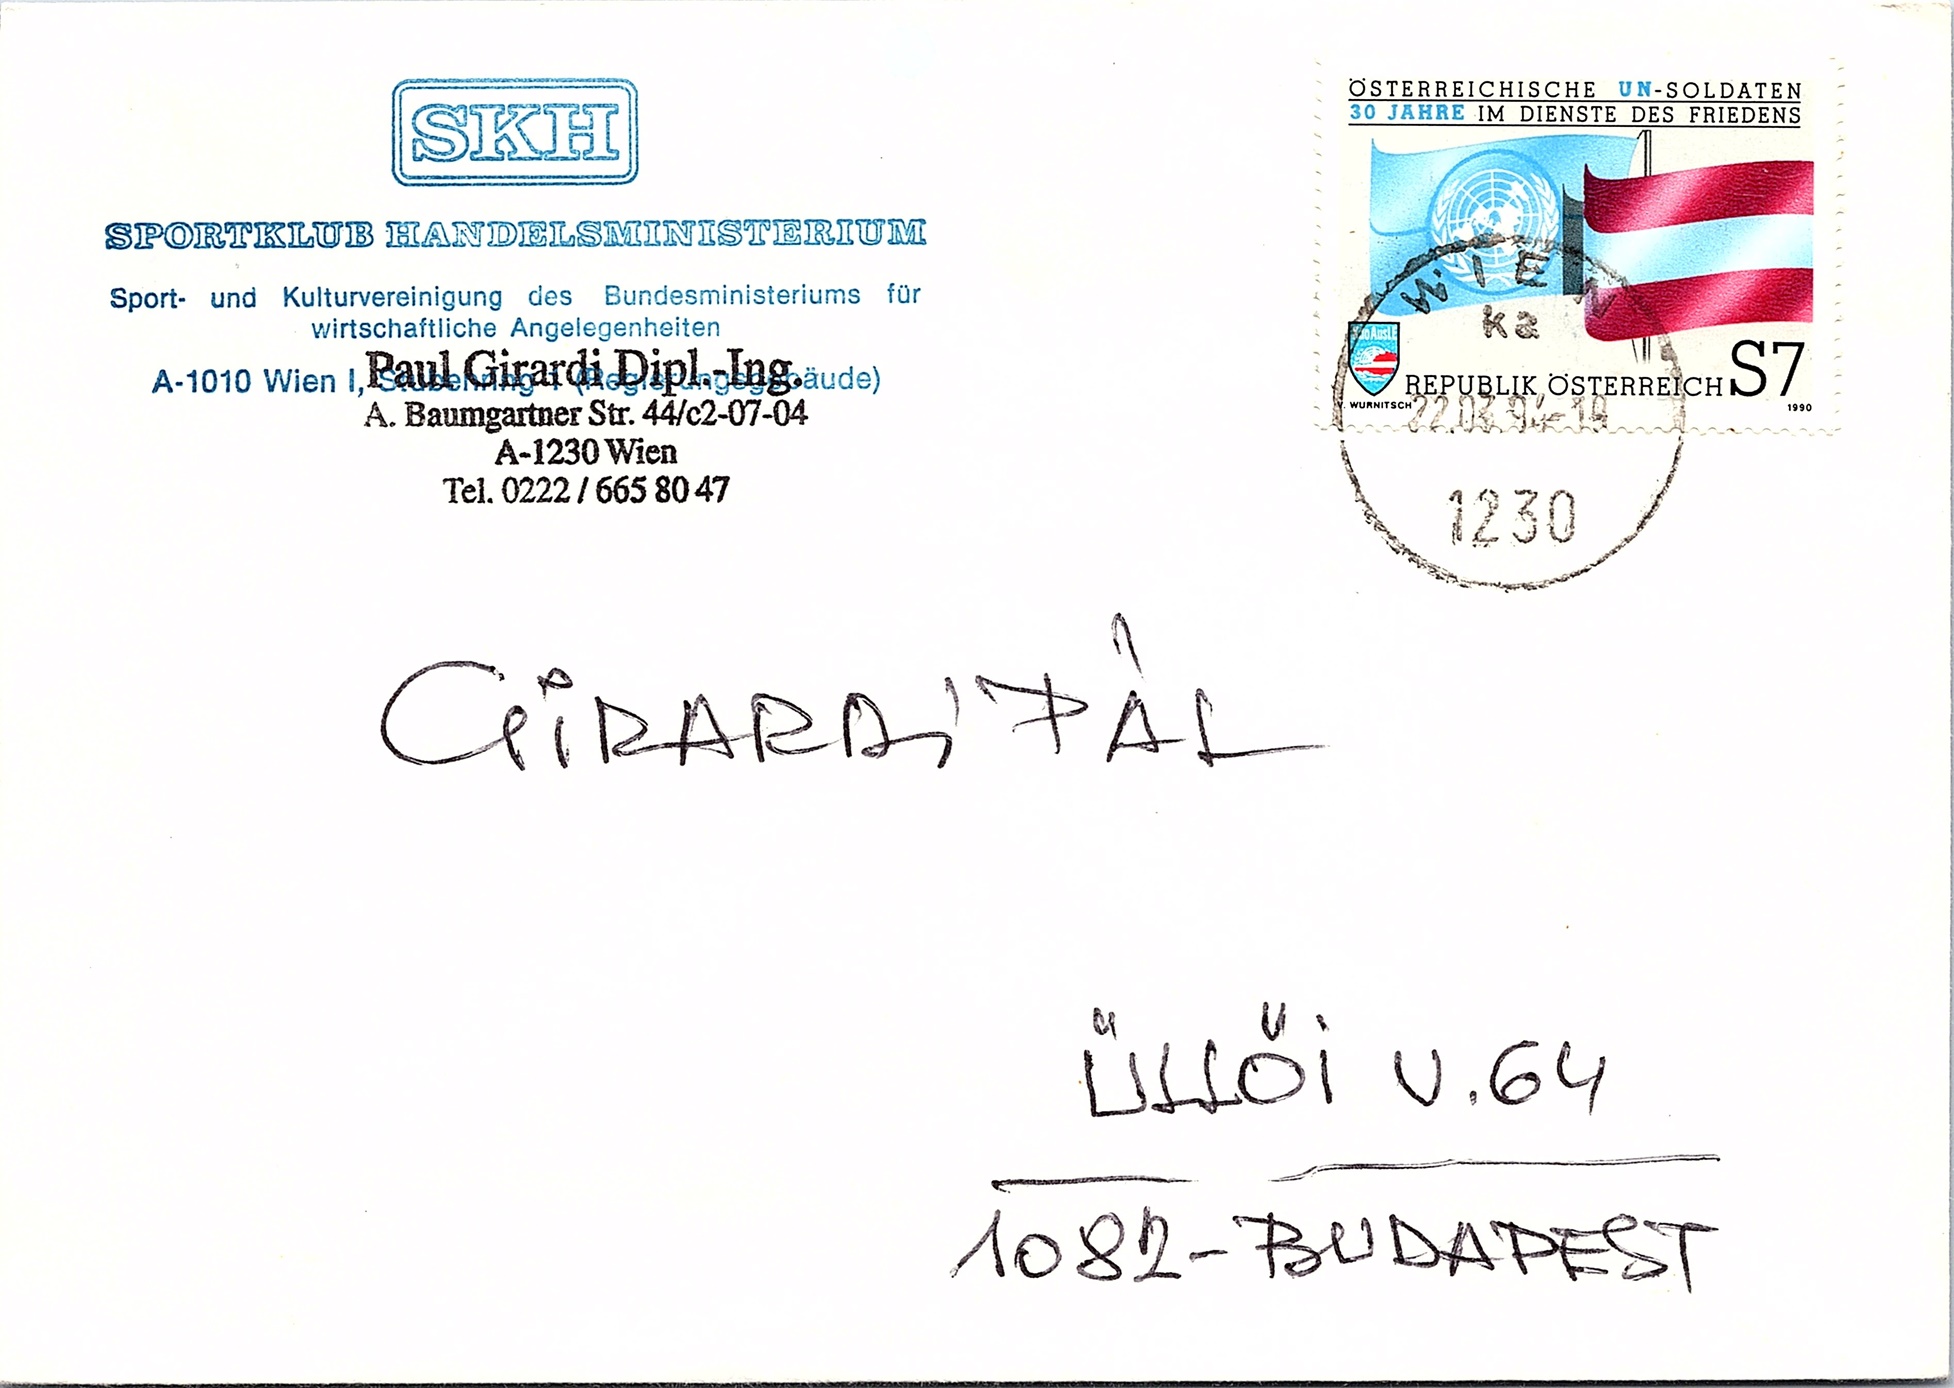 SKH
SPORTKLUB HANDELSMINISTERIUM
Sport- und Kulturvereinigung des Bundesministeriums für
wirtschaftliche Angelegenheiten
A-1010 Wien I, Stubenring 1 (Regierungsgebäude)
Paul Girardi Dipl.-Ing.
A. Baumgartner Str. 44/c2-07-04
A-1230 Wien
Tel. 0222 / 665 80 47
ÖSTERREICHISCHE UN-SOLDATEN
30 JAHRE IM DIENSTE DES FRIEDENS
REPUBLIK ÖSTERREICH S7
WURNITSCH 1990
WIEN
ka
22.03.94-19
1230
GIRARDI PÁL
ÜLLŐI U. 64
1082-BUDAPEST